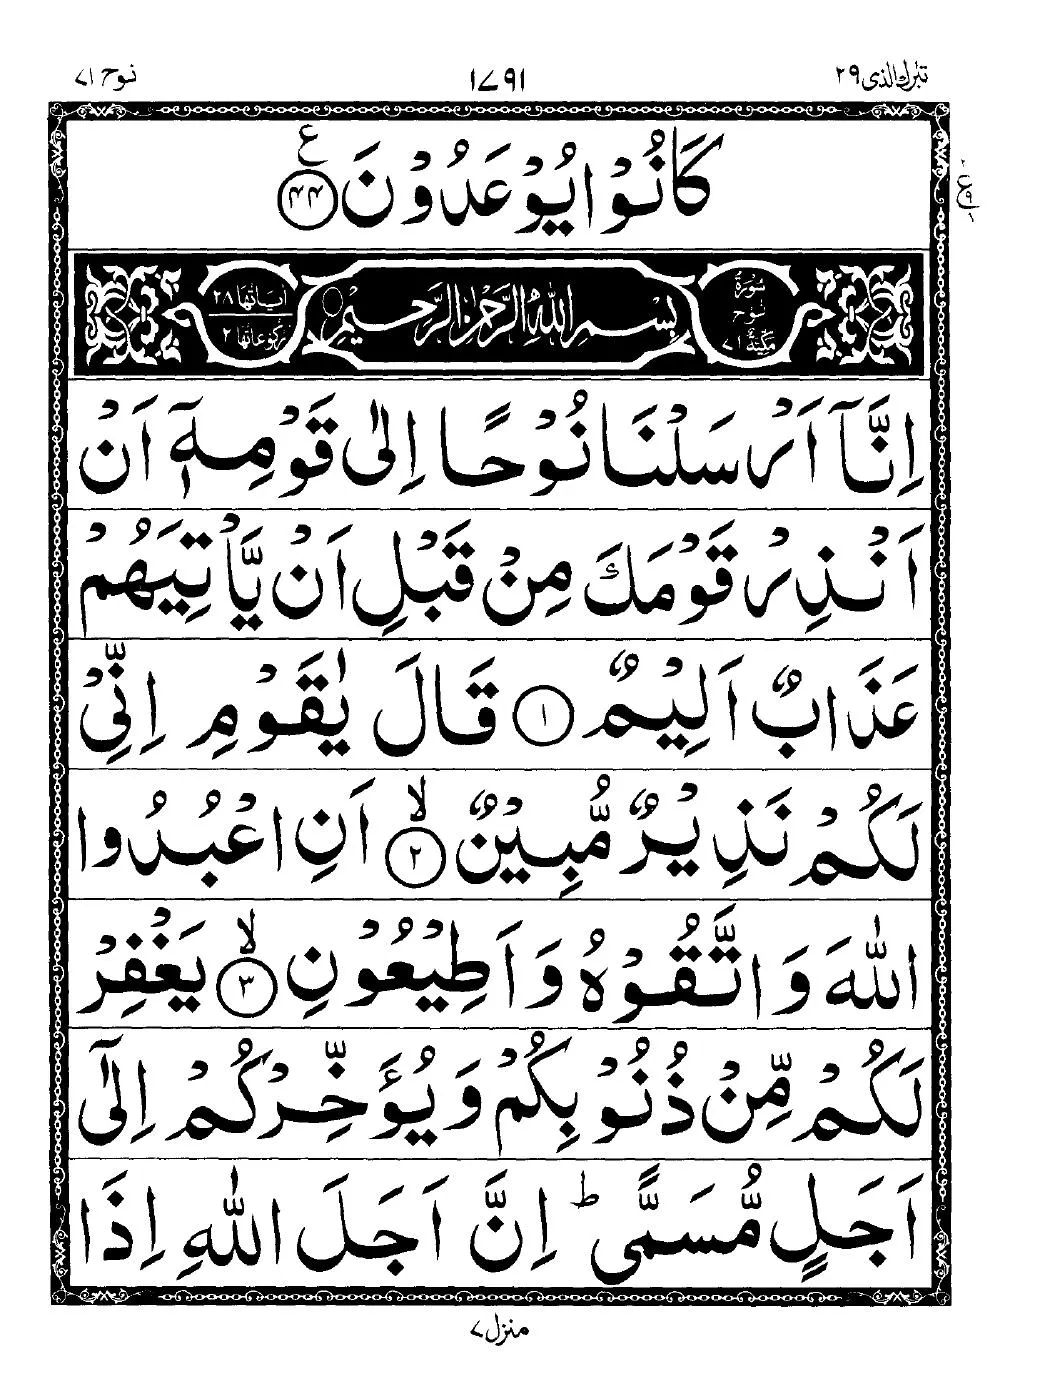 تبٰرك الذی ٢٩
١٧٩١
نوح ٧١
كَانُوْا يُوْعَدُوْنَ ﴿٤٤﴾ ع
ع ٩
سُوْرَةُ نُوْحٍ مَكِّيَّةٌ ٧١
بِسْمِ اللهِ الرَّحْمٰنِ الرَّحِيْمِ
اٰيَاتُهَا ٢٨
رُكُوْعَاتُهَا ٢
اِنَّاۤ اَرْسَلْنَا نُوْحًا اِلٰى قَوْمِهٖۤ اَنْ
اَنْذِرْ قَوْمَكَ مِنْ قَبْلِ اَنْ يَّاْتِيَهُمْ
عَذَابٌ اَلِيْمٌ ﴿١﴾ قَالَ يٰقَوْمِ اِنِّىْ
لَكُمْ نَذِيْرٌ مُّبِيْنٌ ﴿٢﴾ ۙ اَنِ اعْبُدُوا
اللّٰهَ وَاتَّقُوْهُ وَاَطِيْعُوْنِ ﴿٣﴾ ۙ يَغْفِرْ
لَكُمْ مِّنْ ذُنُوْبِكُمْ وَيُؤَخِّرْكُمْ اِلٰٓى
اَجَلٍ مُّسَمًّى ؕ اِنَّ اَجَلَ اللّٰهِ اِذَا
منزل ٧